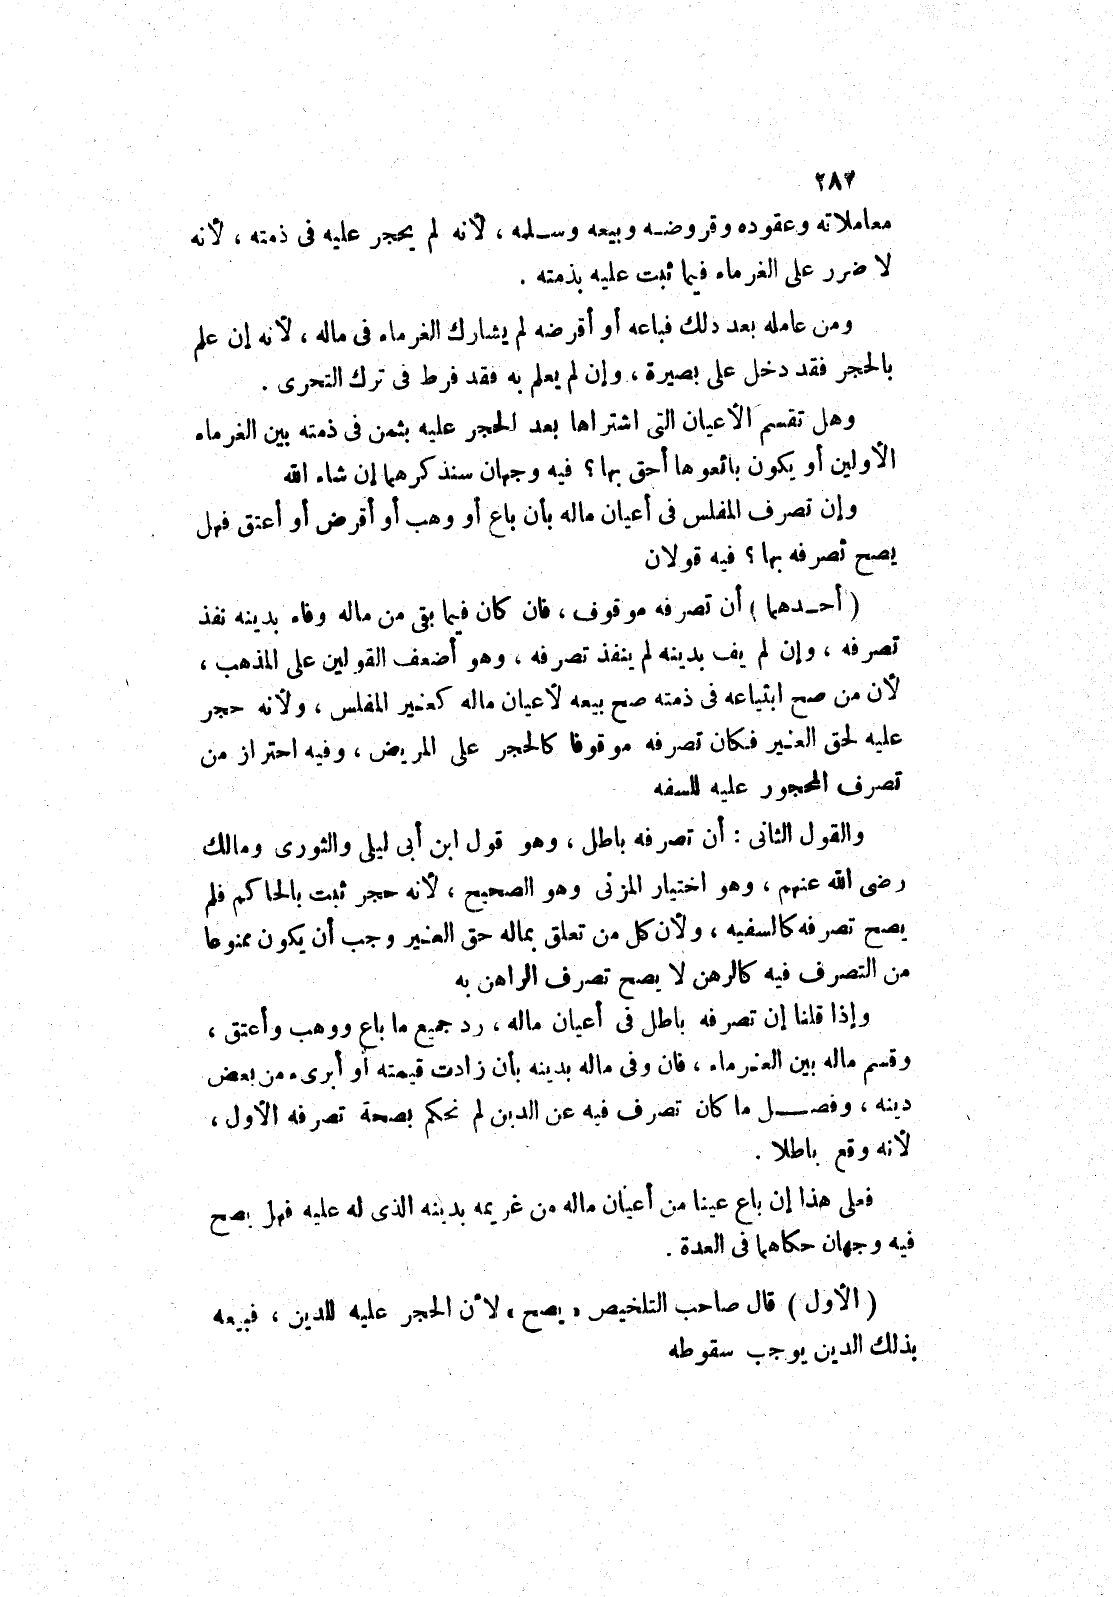 ٢٨٢
معاملاته وعقوده وقروضه وبيعه وسلمه ، لأنه لم يحجر عليه فى ذمته ، لأنه
لا ضرر على الغرماء فيما ثبت عليه بذمته .
ومن عامله بعد ذلك فباعه أو أقرضه لم يشارك الغرماء فى ماله ، لأنه إن علم
بالحجر فقد دخل على بصيرة ، وإن لم يعلم به فقد فرط فى ترك التحرى .
وهل تقسم الأعيان التى اشتراها بعد الحجر عليه بثمن فى ذمته بين الغرماء
الأولين أو يكون بائعوها أحق بها ؟ فيه وجهان سنذكرهما إن شاء الله
وإن تصرف المفلس فى أعيان ماله بأن باع أو وهب أو أقرض أو أعتق فهل
يصح تصرفه بها ؟ فيه قولان
( أحدهما ) أن تصرفه موقوف ، فان كان فيما بقى من ماله وفاء بدينه نفذ
تصرفه ، وإن لم يف بدينه لم ينفذ تصرفه ، وهو أضعف القولين على المذهب ،
لأن من صح ابتياعه فى ذمته صح بيعه لأعيان ماله كغير المفلس ، ولأنه حجر
عليه لحق الغير فكان تصرفه موقوفا كالحجر على المريض ، وفيه احتراز من
تصرف المحجور عليه للسفه
والقول الثانى : أن تصرفه باطل ، وهو قول ابن أبى ليلى والثورى ومالك
رضى الله عنهم ، وهو اختيار المزنى وهو الصحيح ، لأنه حجر ثبت بالحاكم فلم
يصح تصرفه كالسفيه ، ولأن كل من تعلق بماله حق الغير وجب أن يكون ممنوعا
من التصرف فيه كالرهن لا يصح تصرف الراهن به
وإذا قلنا إن تصرفه باطل فى أعيان ماله ، رد جميع ما باع ووهب وأعتق ،
وقسم ماله بين الغرماء ، فان وفى ماله بدينه بأن زادت قيمته أو أبرىء من بعض
دينه ، وفصل ما كان تصرف فيه عن الدين لم نحكم بصحة تصرفه الأول ،
لأنه وقع باطلا .
فعلى هذا إن باع عينا من أعيان ماله من غريمه بدينه الذى له عليه فهل يصح
فيه وجهان حكاهما فى العدة .
( الأول ) قال صاحب التلخيص « يصح » لأن الحجر عليه للدين ، فبيعه
بذلك الدين يوجب سقوطه